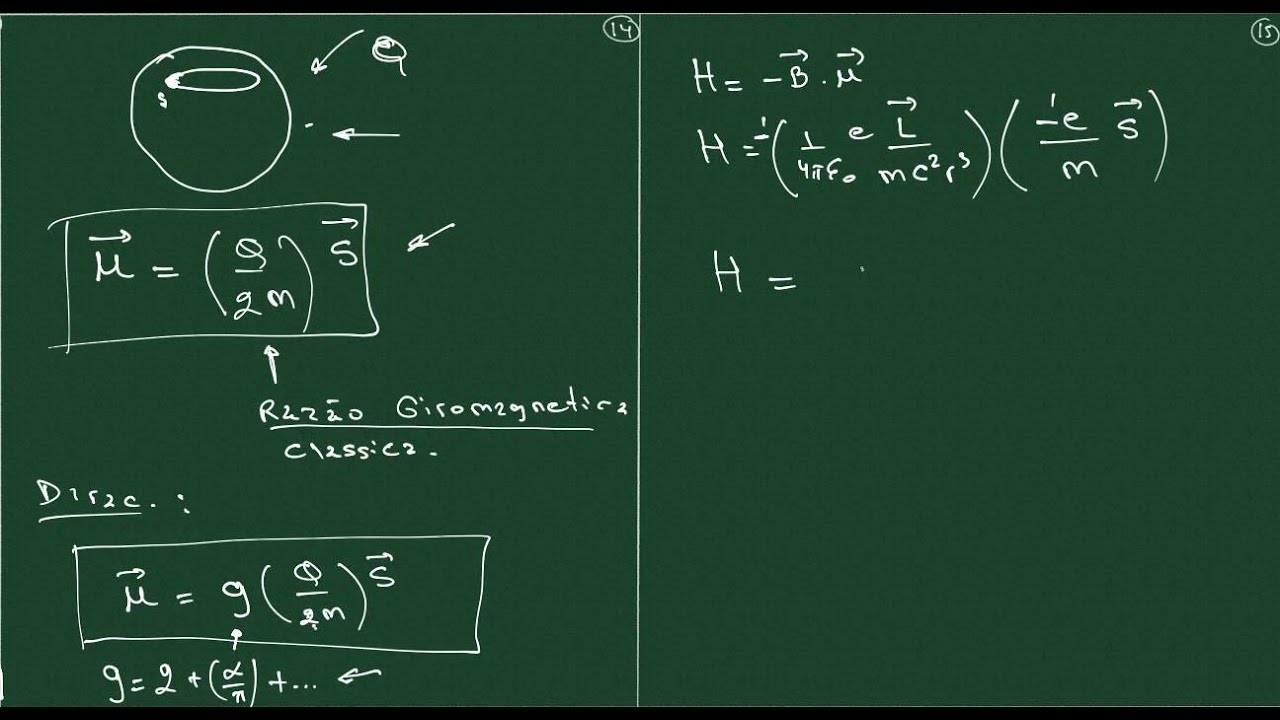 14
Q
s
μ⃗ = (Q/2m) S⃗
Razão Giromagnetica
classica.
Dirac. :
μ⃗ = g (Q/2m) S⃗
g = 2 + (α/π) + ...
15
H = -B⃗ . μ⃗
H = -(1/4πε₀ e L⃗/mc²r³) (-e/m S⃗)
H =